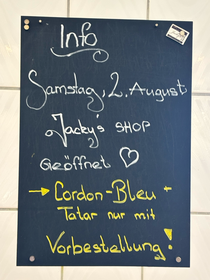 Info
Samstag, 2. August
Jacky's SHOP
Geöffnet ♡
→ Cordon-Bleu ←
Tatar nur mit
Vorbestellung!